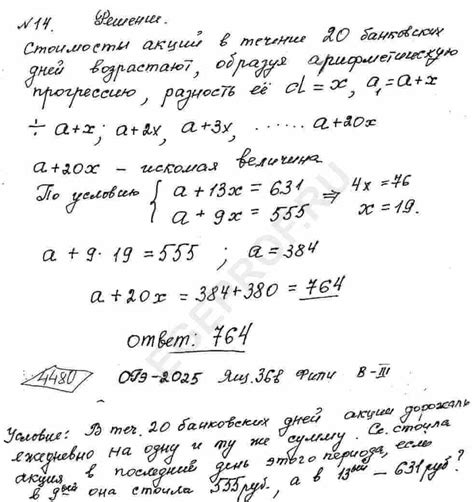 №14. Решение.
Стоимость акций в течение 20 банковских
дней возрастают, образуя арифметическую
прогрессию, разность её d = x, a₁ = a + x
÷ a+x; a+2x, a+3x, ...... a+20x
a+20x – искомая величина
По условию { a + 13x = 631 ⇒ 4x = 76
a + 9x = 555 x = 19.
a + 9·19 = 555 ; a = 384
a + 20x = 384 + 380 = 764
ответ: 764
4480 ОГЭ-2025 Ящ. 36в Фипи В-III
Условие: В теч. 20 банковских дней акции дорожали
ежедневно на одну и ту же сумму. Ск. стоила
акция в последний день этого периода, если
в 9дый она стоила 555 руб., а в 13дый – 631 руб?
EGEPROF.RU